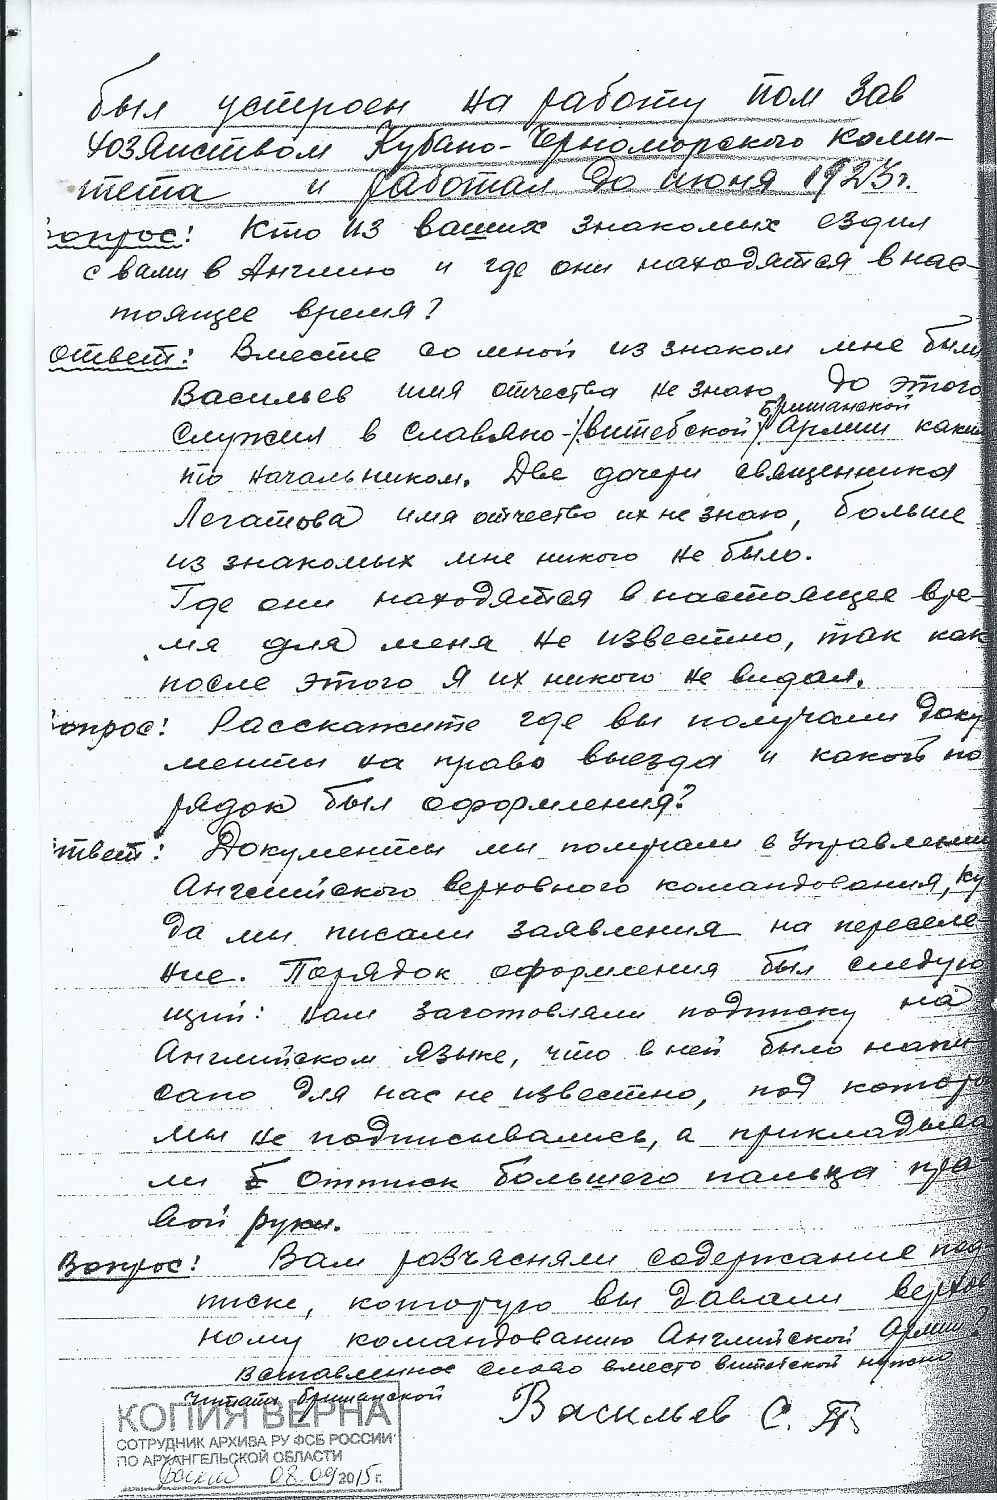 был устроен на работу пом зав
хозяиством Кубано-Черноморского коми-
тета и работал до июня 1923г.
Вопрос: Кто из ваших знакомых ездил
с вами в Англию и где они находятся в нас-
тоящее время?
Ответ: Вместе со мной из знаком мне были
Васильев имя отчества не знаю, до этого
британской
служил в славяно-/витебской/ Армии каким
то начальником. Две дочери священника
Легатова имя отчество их не знаю, больше
из знакомых мне никого не было.
Где они находятся в настоящее вре-
мя для меня не известно, так как
после этого я их никого не видал.
Вопрос: Расскажите где вы получали доку
менты на право выезда и какой по
рядок был оформления?
Ответ: Документы мы получали в Управлении
Английского верховного командования, ку
да мы писали заявления на переселе-
ние. Порядок оформления был следую
щий: нам заготовляли подписку на
Английском языке, что в ней было напи
сано для нас не известно, под которо
мы не подписывались, а прикладыва
ли Оттиск большего пальца пра-
вой руки.
Вопрос: Вам разъясняли содержание под
писки, которую вы давали верхов
ному командованию Английской Армии?
Вставленное слово вместо витебской нужно
читать британской
Васильев С. П.
КОПИЯ ВЕРНА
СОТРУДНИК АРХИВА РУ ФСБ РОССИИ
ПО АРХАНГЕЛЬСКОЙ ОБЛАСТИ
08.09 2015 г.